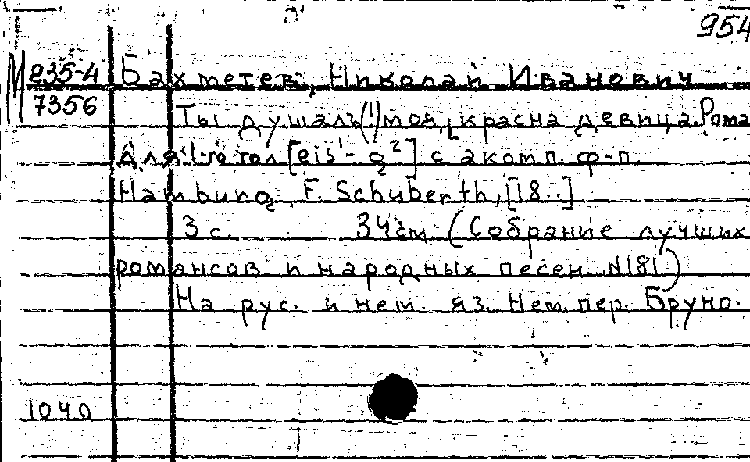 954
М 235-4 Бахметев, Николай Иванович
7356
Ты душаль(!) моя, красна девица. Рома
Для 1го гол [eis¹-g²] с акомп. ф-п.
Hamburg, F. Schuberth, [18..]
3 с. 34 см (Собрание лучших
романсов и народных песен N181)
На рус. и нем яз. Нем. пер. Бруно.
1040